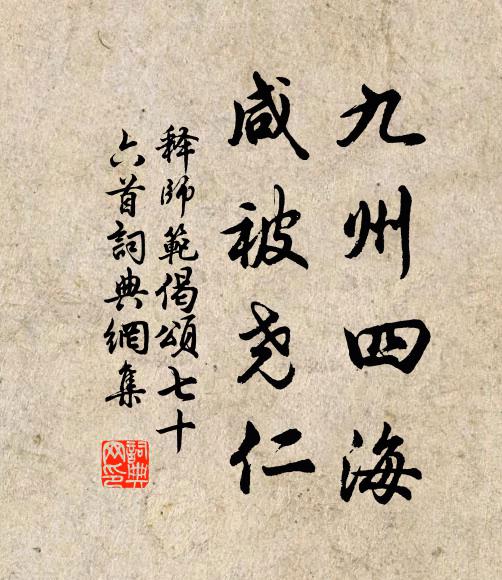 九州四海
咸被尧仁
释師範偈頌七十
六首詞典網集
詞典網印